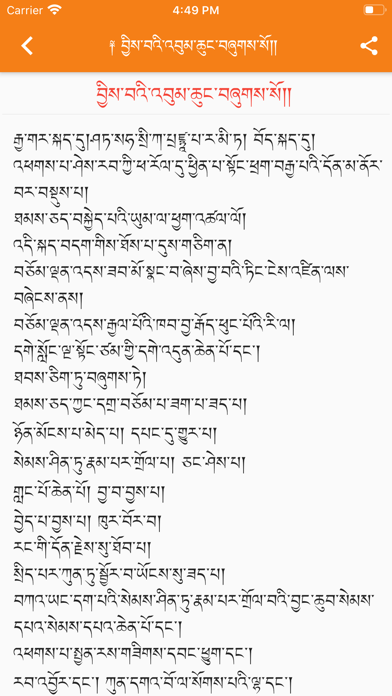 Carrier 4:49 PM
༈ བྱིས་བའི་འབུམ་ཆུང་བཞུགས་སོ།།
བྱིས་བའི་འབུམ་ཆུང་བཞུགས་སོ།།
རྒྱ་གར་སྐད་དུ།ཤཏ་སཧ་སྲི་ཀ་པྲཛྙཱ་པ་ར་མི་ཏ། བོད་སྐད་དུ།
འཕགས་པ་ཤེས་རབ་ཀྱི་ཕ་རོལ་དུ་ཕྱིན་པ་སྟོང་ཕྲག་བརྒྱ་པའི་དོན་མ་ནོར་
བར་བསྡུས་པ།
ཐམས་ཅད་བསྐྱེད་པའི་ཡུམ་ལ་ཕྱག་འཚལ་ལོ།
འདི་སྐད་བདག་གིས་ཐོས་པ་དུས་གཅིག་ན།
བཅོམ་ལྡན་འདས་ཟབ་མོ་སྣང་བ་ཞེས་བྱ་བའི་ཏིང་ངེས་འཛིན་ལས་
བཞེངས་ནས།
བཅོམ་ལྡན་འདས་རྒྱལ་པོའི་ཁབ་བྱ་རྒོད་ཕུང་པོའི་རི་ལ།
དགེ་སློང་ལྔ་སྟོང་ཙམ་གྱི་དགེ་འདུན་ཆེན་པོ་དང་།
ཐབས་ཅིག་ཏུ་བཞུགས་ཏེ།
ཐམས་ཅད་ཀྱང་དགྲ་བཅོམ་པ་ཟག་པ་ཟད་པ།
ཉོན་མོངས་པ་མེད་པ། དཔང་དུ་གྱུར་པ།
སེམས་ཤིན་ཏུ་རྣམ་པར་གྲོལ་པ། ཅང་ཤེས་པ།
གླང་པོ་ཆེན་པོ། བྱ་བ་བྱས་པ།
བྱེད་པ་བྱས་པ། ཁུར་བོར་བ།
རང་གི་དོན་རྗེས་སུ་ཐོབ་པ།
སྲིད་པར་ཀུན་ཏུ་སྦྱོར་བ་ཡོངས་སུ་ཟད་པ།
བཀའ་ཡང་དག་པའི་སེམས་ཤིན་ཏུ་རྣམ་པར་གྲོལ་བའི་བྱང་ཆུབ་སེམས་
དཔའ་སེམས་དཔའ་ཆེན་པོ་དང་།
འཕགས་པ་སྤྱན་རས་གཟིགས་དབང་ཕྱུག་དང་།
རབ་འབྱོར་དང་། ཀུན་དགའ་བོ་ལ་སོགས་པའི་ལྷ་དང་།